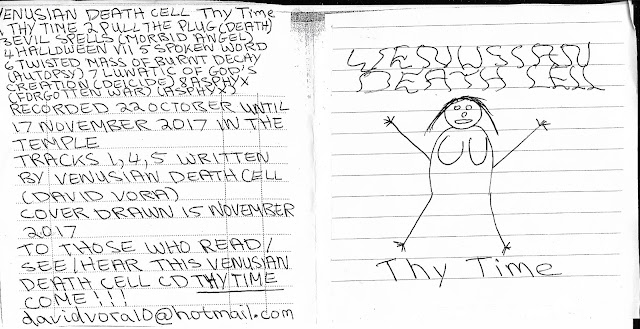 VENUSIAN DEATH CELL Thy Time
1 THY TIME 2 PULL THE PLUG (DEATH)
3 EVIL SPELLS (MORBID ANGEL)
4 HALLOWEEN VII 5 SPOKEN WORD
6 TWISTED MASS OF BURNT DECAY
(AUTOPSY) 7 LUNATIC OF GOD'S
CREATION (DEICIDE) 8 ASPHYX
(FORGOTTEN WAR) (ASPHYX)
RECORDED 22 OCTOBER UNTIL
17 NOVEMBER 2017 IN THE
TEMPLE
TRACKS 1, 4, 5 WRITTEN
BY VENUSIAN DEATH CELL
(DAVID VORA)
COVER DRAWN 15 NOVEMBER
2017
TO THOSE WHO READ/
SEE/HEAR THIS VENUSIAN
DEATH CELL CD THY TIME
COME!!!
davidvora10@hotmail.com
VENUSIAN
DEATH CELL
Thy Time